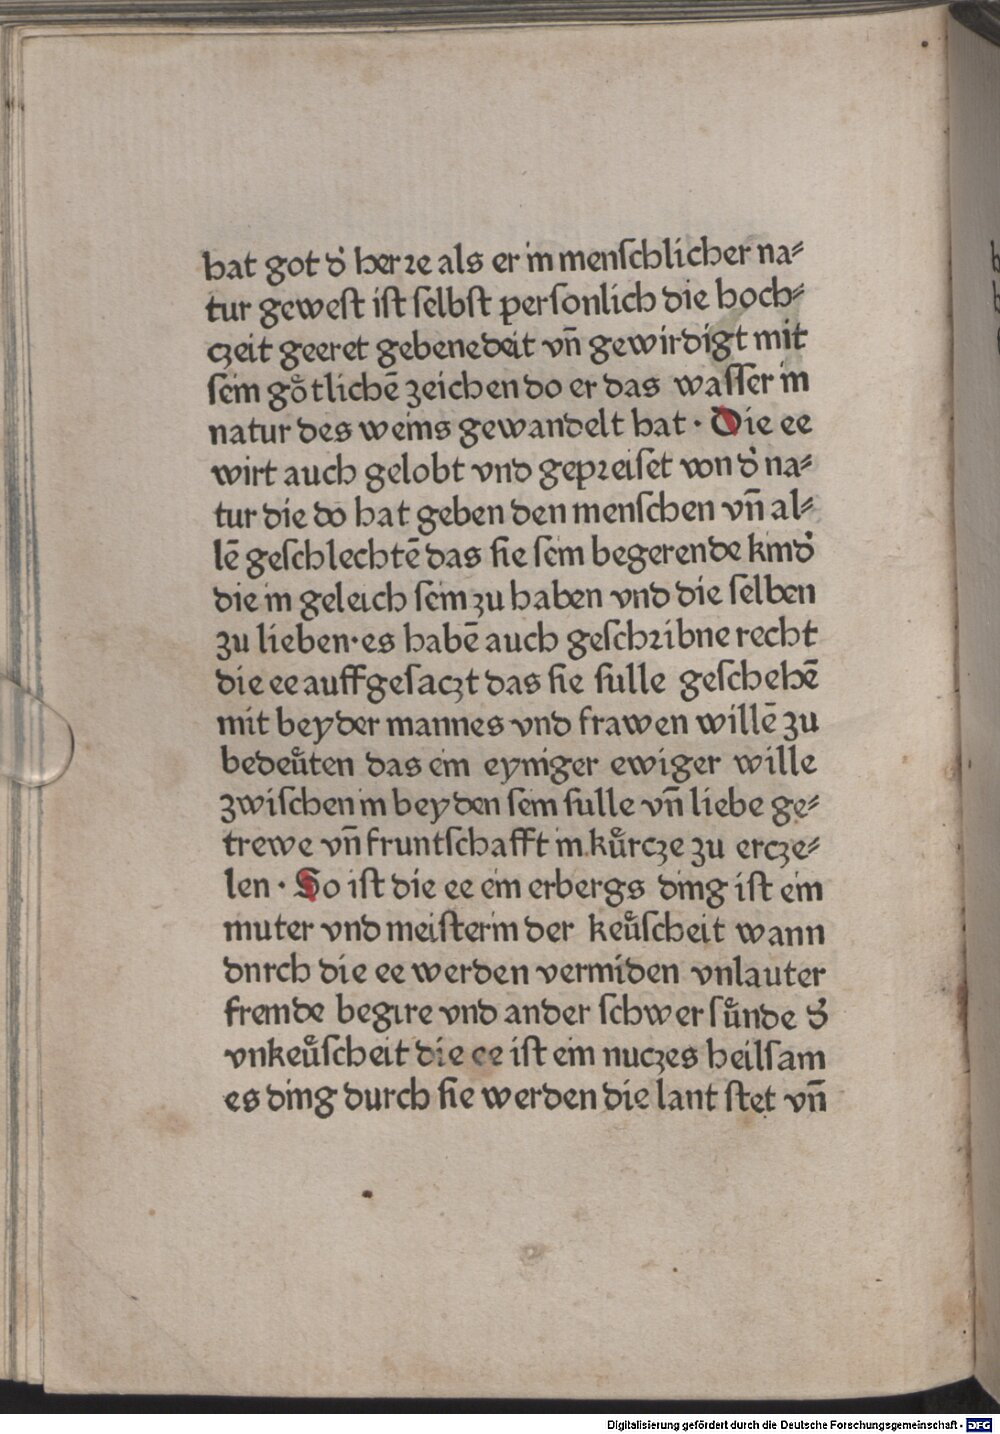 hat got dʾ herꝛe als er in menſchlicher na⸗
tur geweſt iſt ſelbſt perſonlich die hoch⸗
czeit geeret gebenedeit vn̄ gewirdigt mit
ſein goͤtlichē zeichen do er das waſſer in
natur des weins gewandelt hat · Die ee
wirt auch gelobt vnd gepꝛeiſet von dʾ na⸗
tur die do hat geben den menſchen vn̄ al⸗
lē geſchlechtē das ſie ſein begerende kindʾ
die in geleich ſein zu haben vnd die ſelben
zu lieben·es habē auch geſchꝛibne recht
die ee auffgeſaczt das ſie ſulle geſchehē
mit beyder mannes vnd frawen willē zu
bedeuͤten das ein eyniger ewiger wille
zwiſchen in beyden ſein ſulle vn̄ liebe ge⸗
trewe vn̄ fruntſchafft in kuͤrcze zu ercze⸗
len · So iſt die ee ein erbergs ding iſt ein
muter vnd meiſterin der keuͤſcheit wann
dnrch die ee werden vermiden vnlauter
fremde begire vnd ander ſchwer ſuͤnde dʾ
vnkeuͤſcheit die ee iſt ein nuczes heilſam
es ding durch ſie werden die lant ſtet vn̄
Digitalisierung gefördert durch die Deutsche Forschungsgemeinschaft - DFG